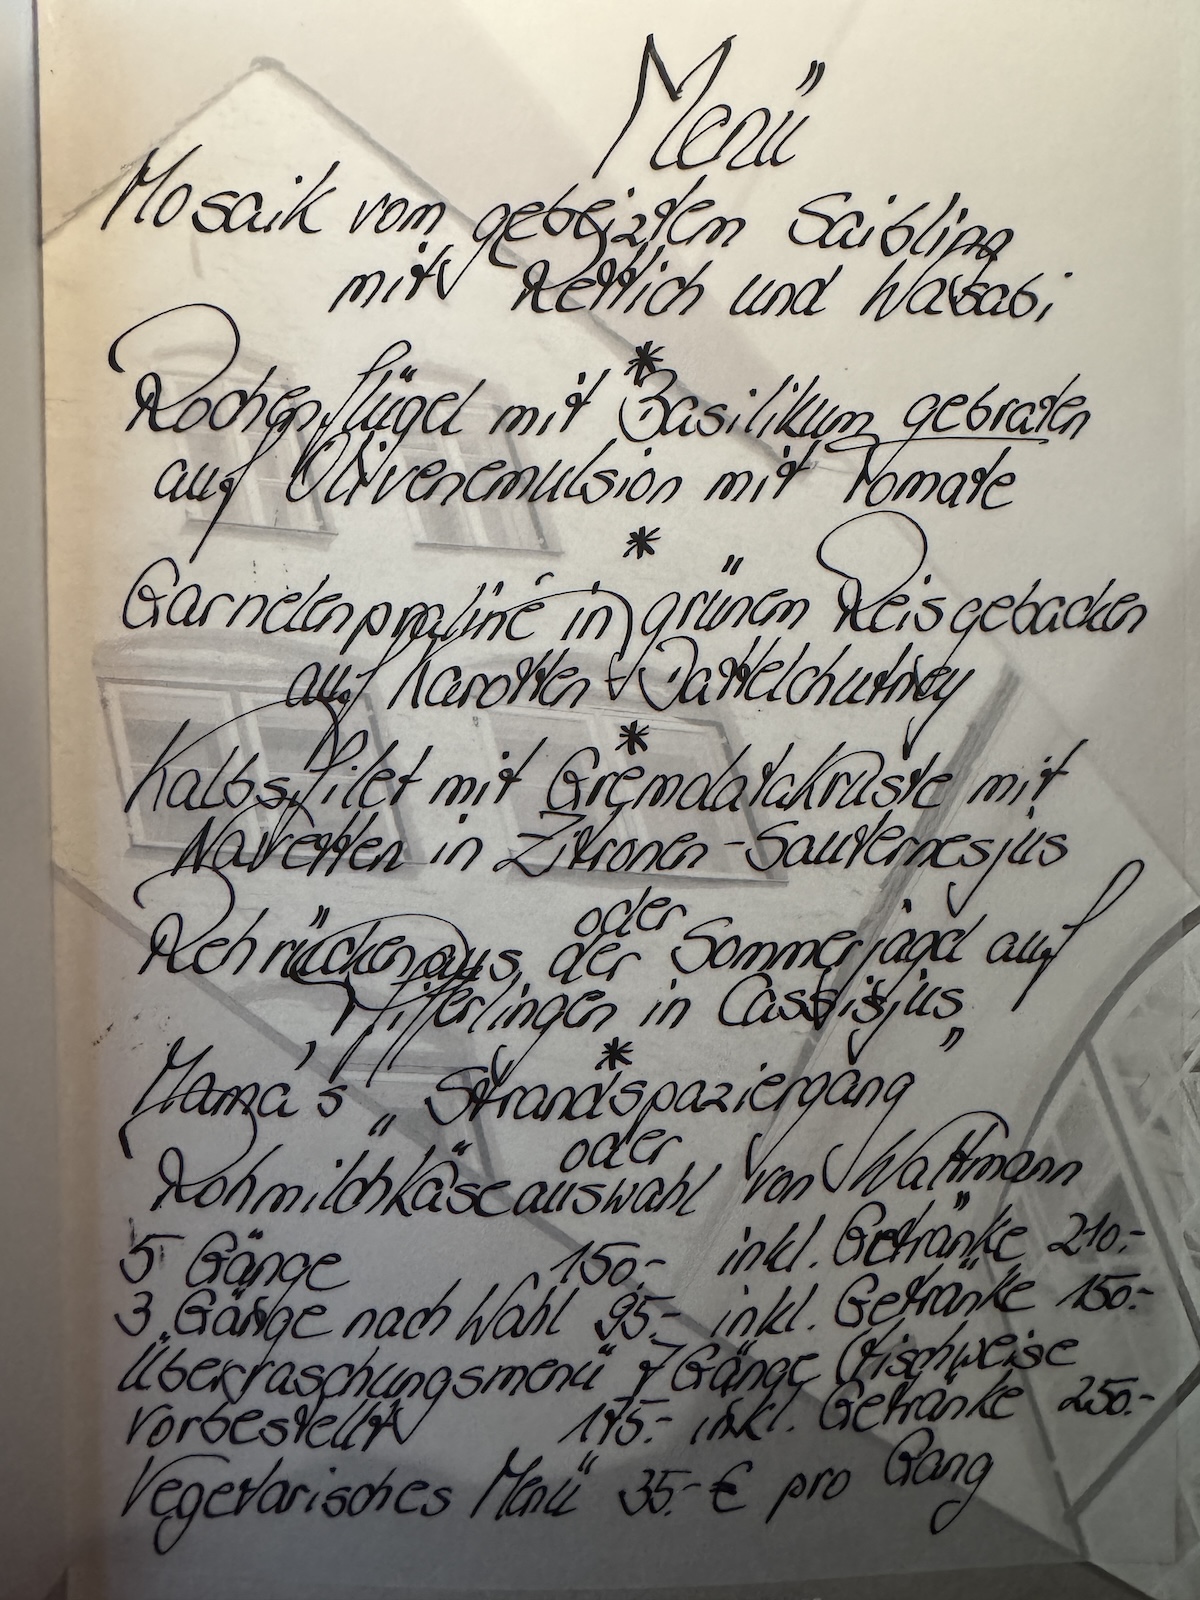 Menü
Mosaik vom gebeizten Saibling
mit Rettich und Wasabi
*
Rochenflügel mit Basilikum gebraten
auf Olivenemulsion mit Tomate
*
Garnelenpraline in grünem Reis gebacken
auf Karotten-Dattelchutney
*
Kalbsfilet mit Gremolatakruste mit
Navetten in Zitronen-Sauternesjus
oder
Rehrücken aus der Sommerjagd auf
Pfifferlingen in Cassisjus
*
Mama's „Strandspaziergang"
oder
Rohmilchkäseauswahl von Waltmann
5 Gänge 150.- inkl. Getränke 210.-
3 Gänge nach Wahl 95.- inkl. Getränke 150.-
Überraschungsmenü 7 Gänge (tischweise
vorbestellt) 175.- inkl. Getränke 250.-
Vegetarisches Menü 35.-€ pro Gang